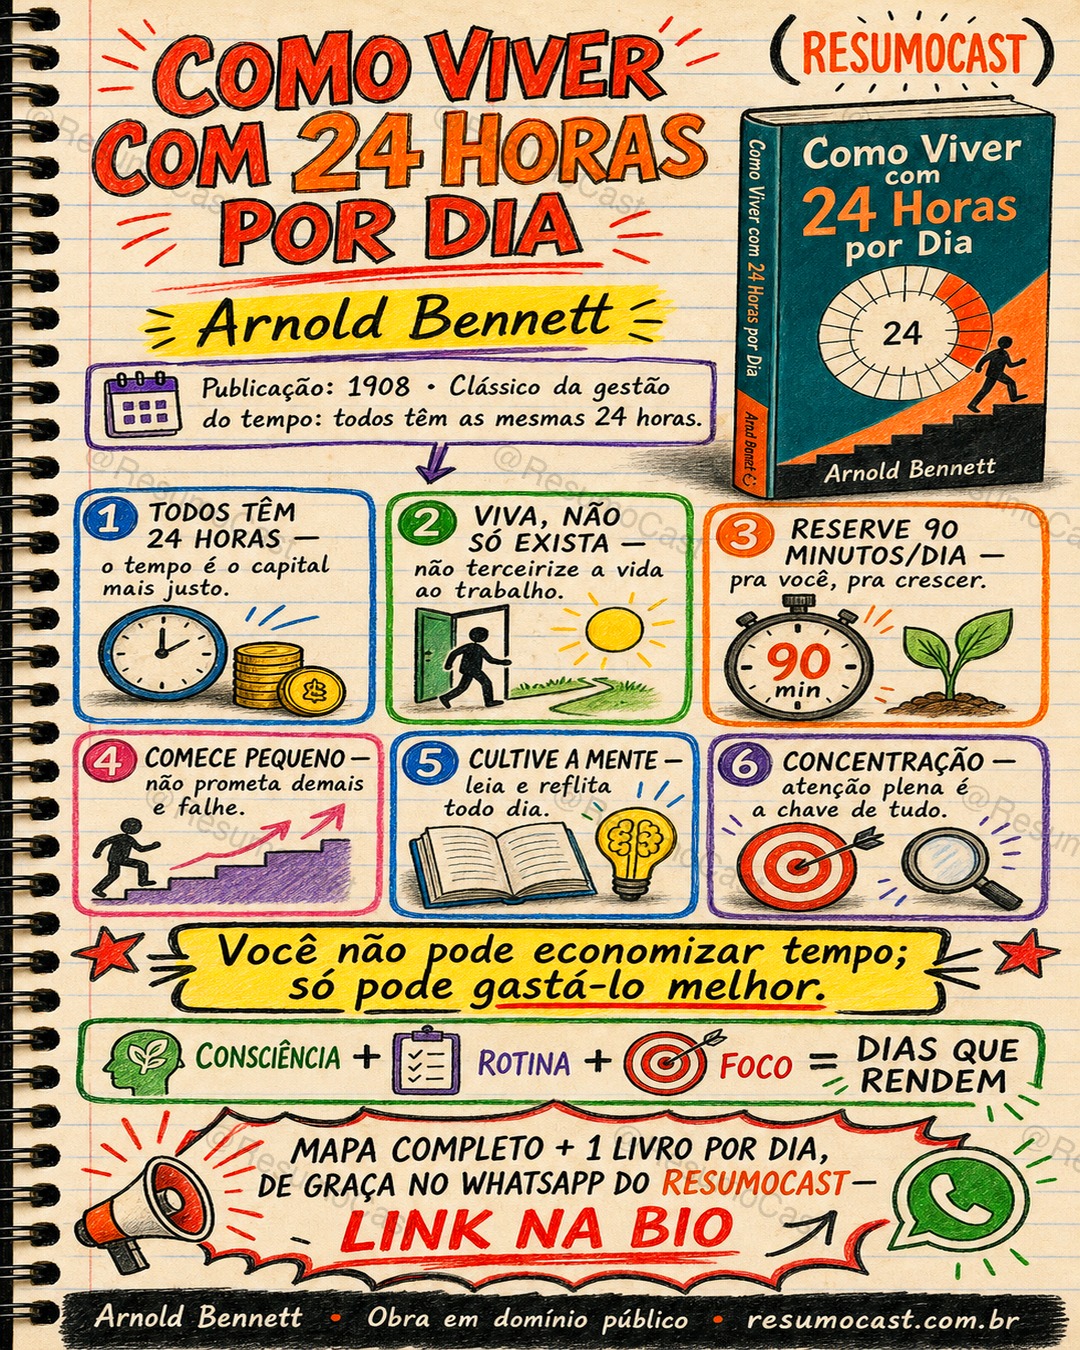 COMO VIVER
COM 24 HORAS
POR DIA
(RESUMOCAST)
Arnold Bennett
Publicação: 1908 • Clássico da gestão
do tempo: todos têm as mesmas 24 horas.
Como Viver
com
24 Horas
por Dia
24
Arnold Bennett
Como Viver com 24 Horas por Dia
1 TODOS TÊM
24 HORAS —
o tempo é o capital
mais justo.
2 VIVA, NÃO
SÓ EXISTA —
não terceirize a vida
ao trabalho.
3 RESERVE 90
MINUTOS/DIA —
pra você, pra crescer.
90
min
4 COMECE PEQUENO —
não prometa demais
e falhe.
5 CULTIVE A MENTE —
leia e reflita
todo dia.
6 CONCENTRAÇÃO —
atenção plena é
a chave de tudo.
Você não pode economizar tempo;
só pode gastá-lo melhor.
CONSCIÊNCIA + ROTINA + FOCO = DIAS QUE
RENDEM
MAPA COMPLETO + 1 LIVRO POR DIA,
DE GRAÇA NO WHATSAPP DO RESUMOCAST —
LINK NA BIO
Arnold Bennett • Obra em domínio público • resumocast.com.br
@ResumoCast